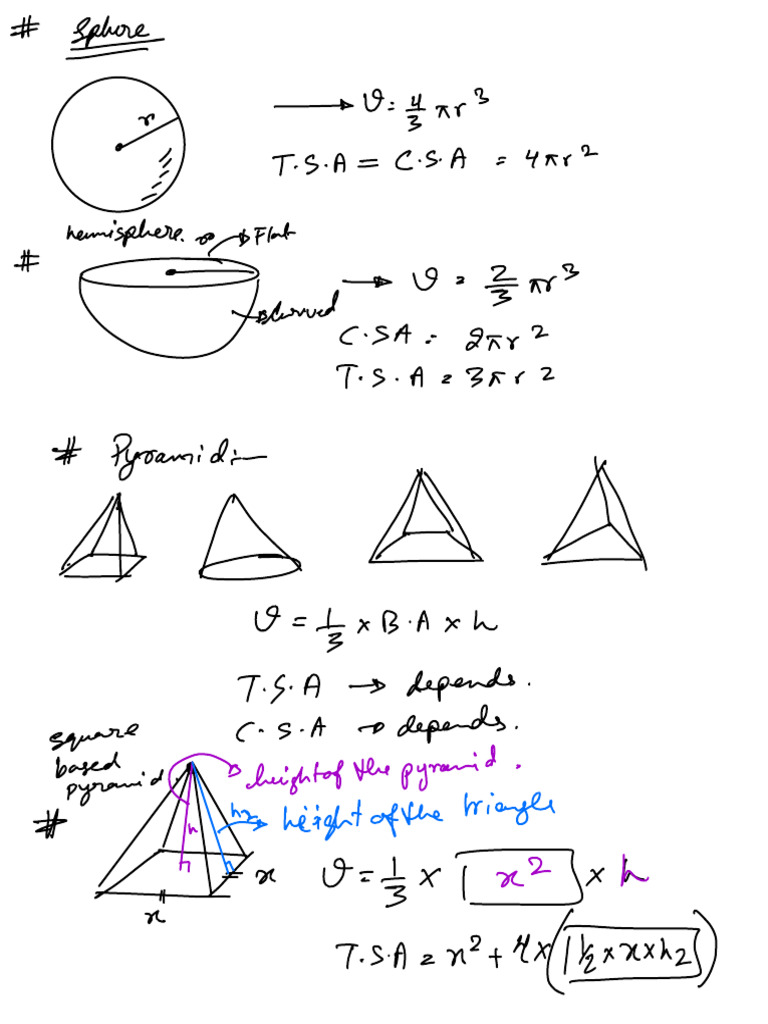 # Sphere
r
→ V = 4/3 πr³
T.S.A = C.S.A = 4πr²
# hemisphere.
→ Flat
→ curved
→ V = 2/3 πr³
C.SA = 2πr²
T.S.A = 3πr²
# Pyramid:—
V = 1/3 × B.A × h
T.S.A → depends.
C.S.A → depends.
# square
based
pyramid.
→ height of the pyramid.
h
h₂ → height of the triangle
x
x
V = 1/3 × x² × h
T.S.A = x² + 4×(1/2 × x × h₂)